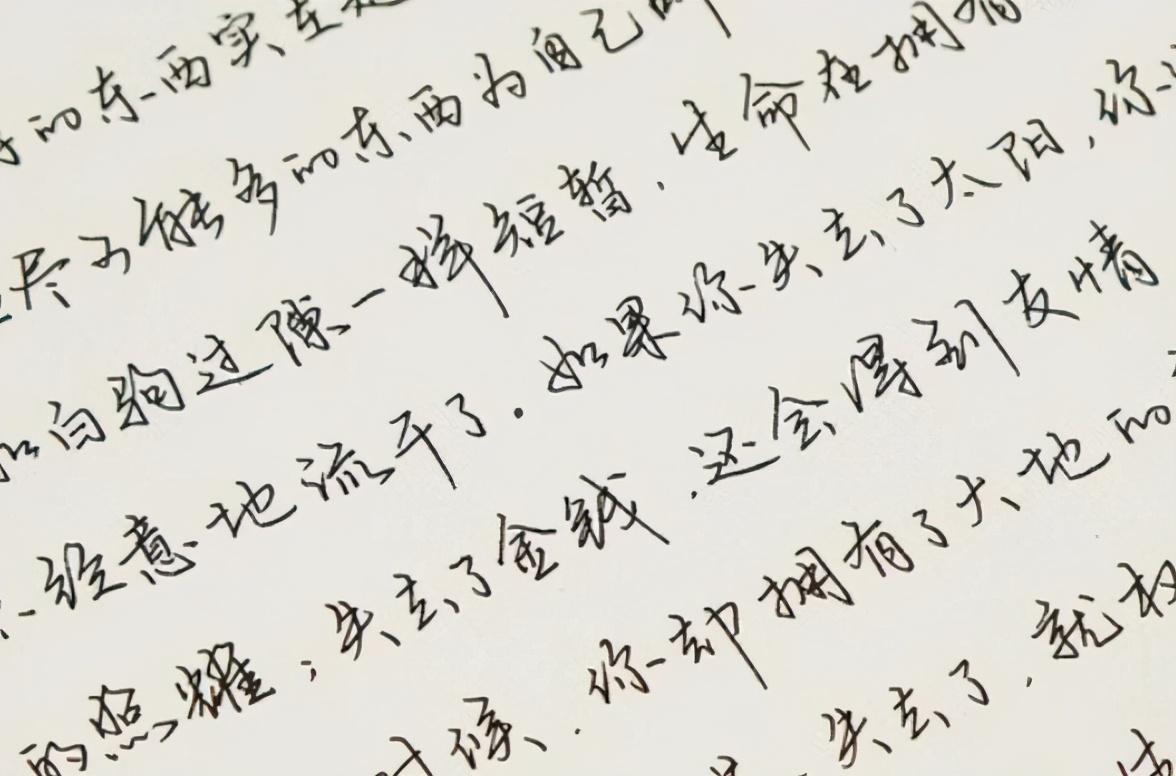 的东西实在
尽可能多的东西为自己
如白驹过隙一样短暂，生命在拥有
不经意地流干了。如果你失去了太阳，你
的照耀；失去了金钱，还会得到友情
时候，你却拥有了大地的
失去了，就权